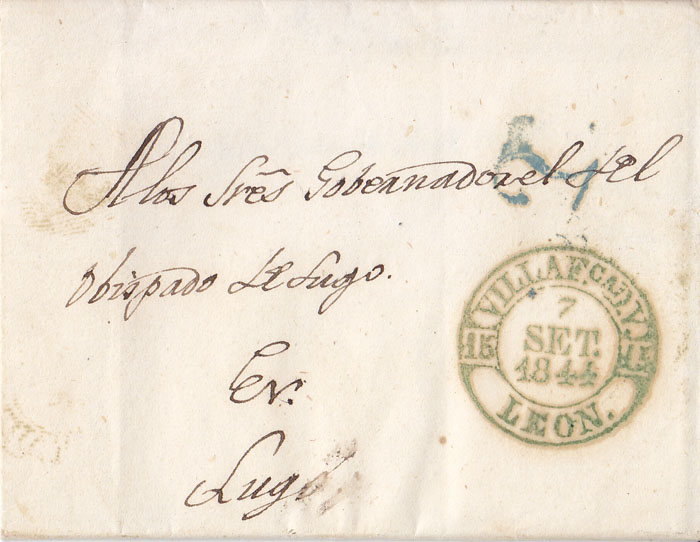 A los Sres Gobernadores del
Obispado de Lugo.
En.
Lugo
VILLAFCA DV.
15 15
7
SET.
1844
LEON.